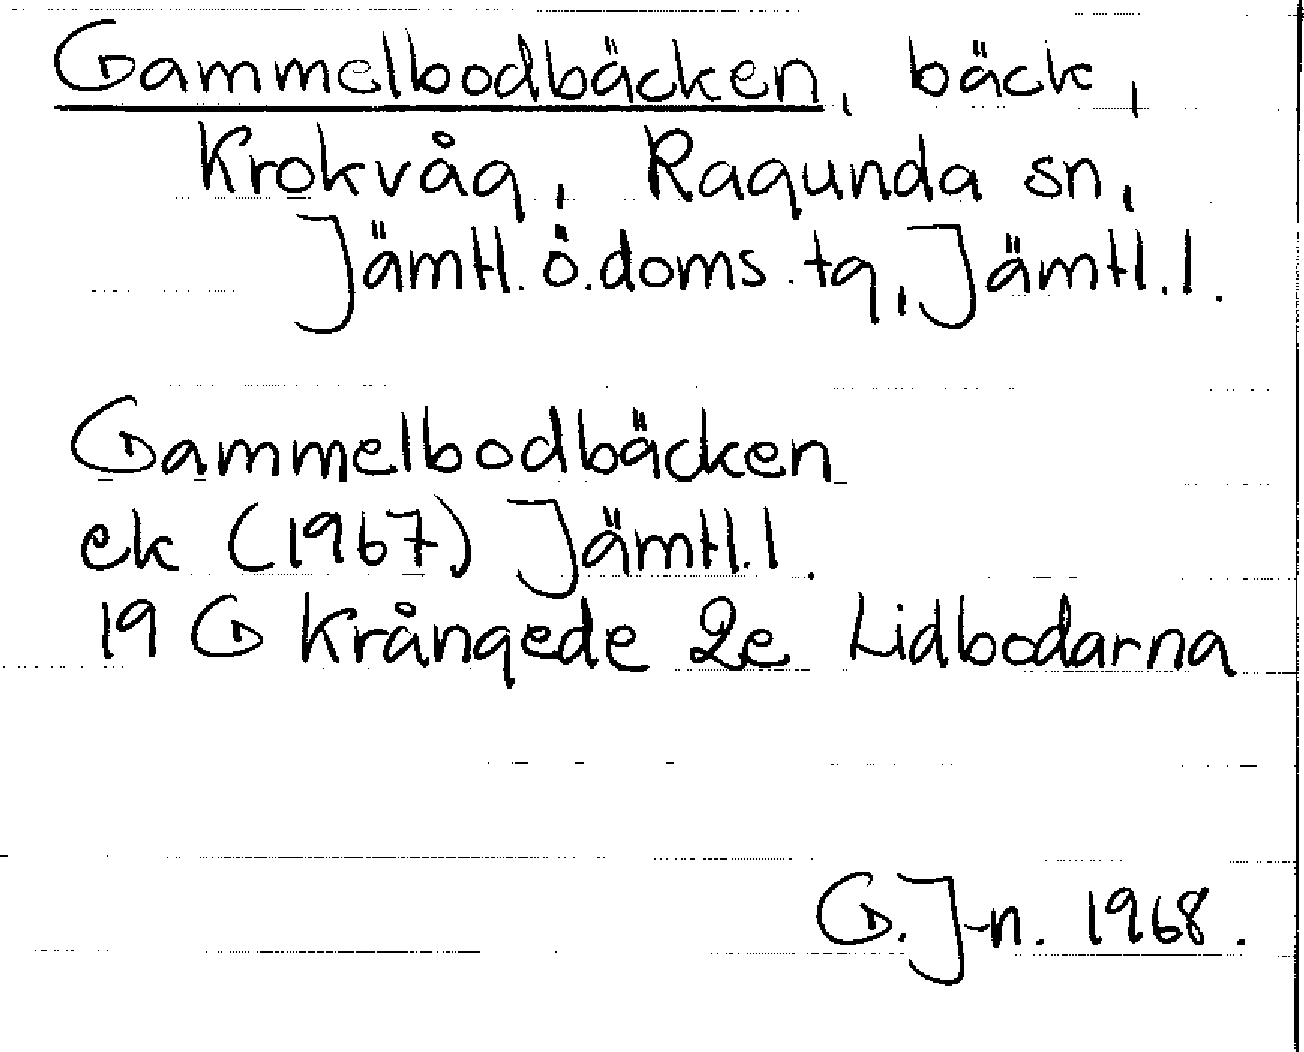 Gammelbodbäcken, bäck,
Krokvåg, Ragunda sn,
Jämtl. ö. doms. tg, Jämtl. l.
Gammelbodbäcken
ek (1967) Jämtl. l.
19 G Krångede 2e Lidbodarna
G. J-n. 1968.